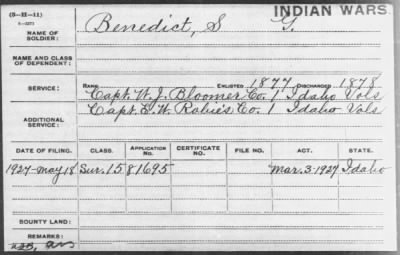 (3-II-11)
6-2271
INDIAN WARS
NAME OF SOLDIER: Benedict, S G.
NAME AND CLASS OF DEPENDENT:
SERVICE: RANK ENLISTED 1877 DISCHARGED 1878
Capt. W. J. Bloomer Co. 1 Idaho Vols
Capt. E. W. Robie's Co. 1 Idaho Vols
ADDITIONAL SERVICE:
DATE OF FILING. CLASS. APPLICATION No. CERTIFICATE No. FILE NO. ACT. STATE.
1927-May 18 Sur. 1581695 Mar. 3-1927 Idaho
BOUNTY LAND:
REMARKS: